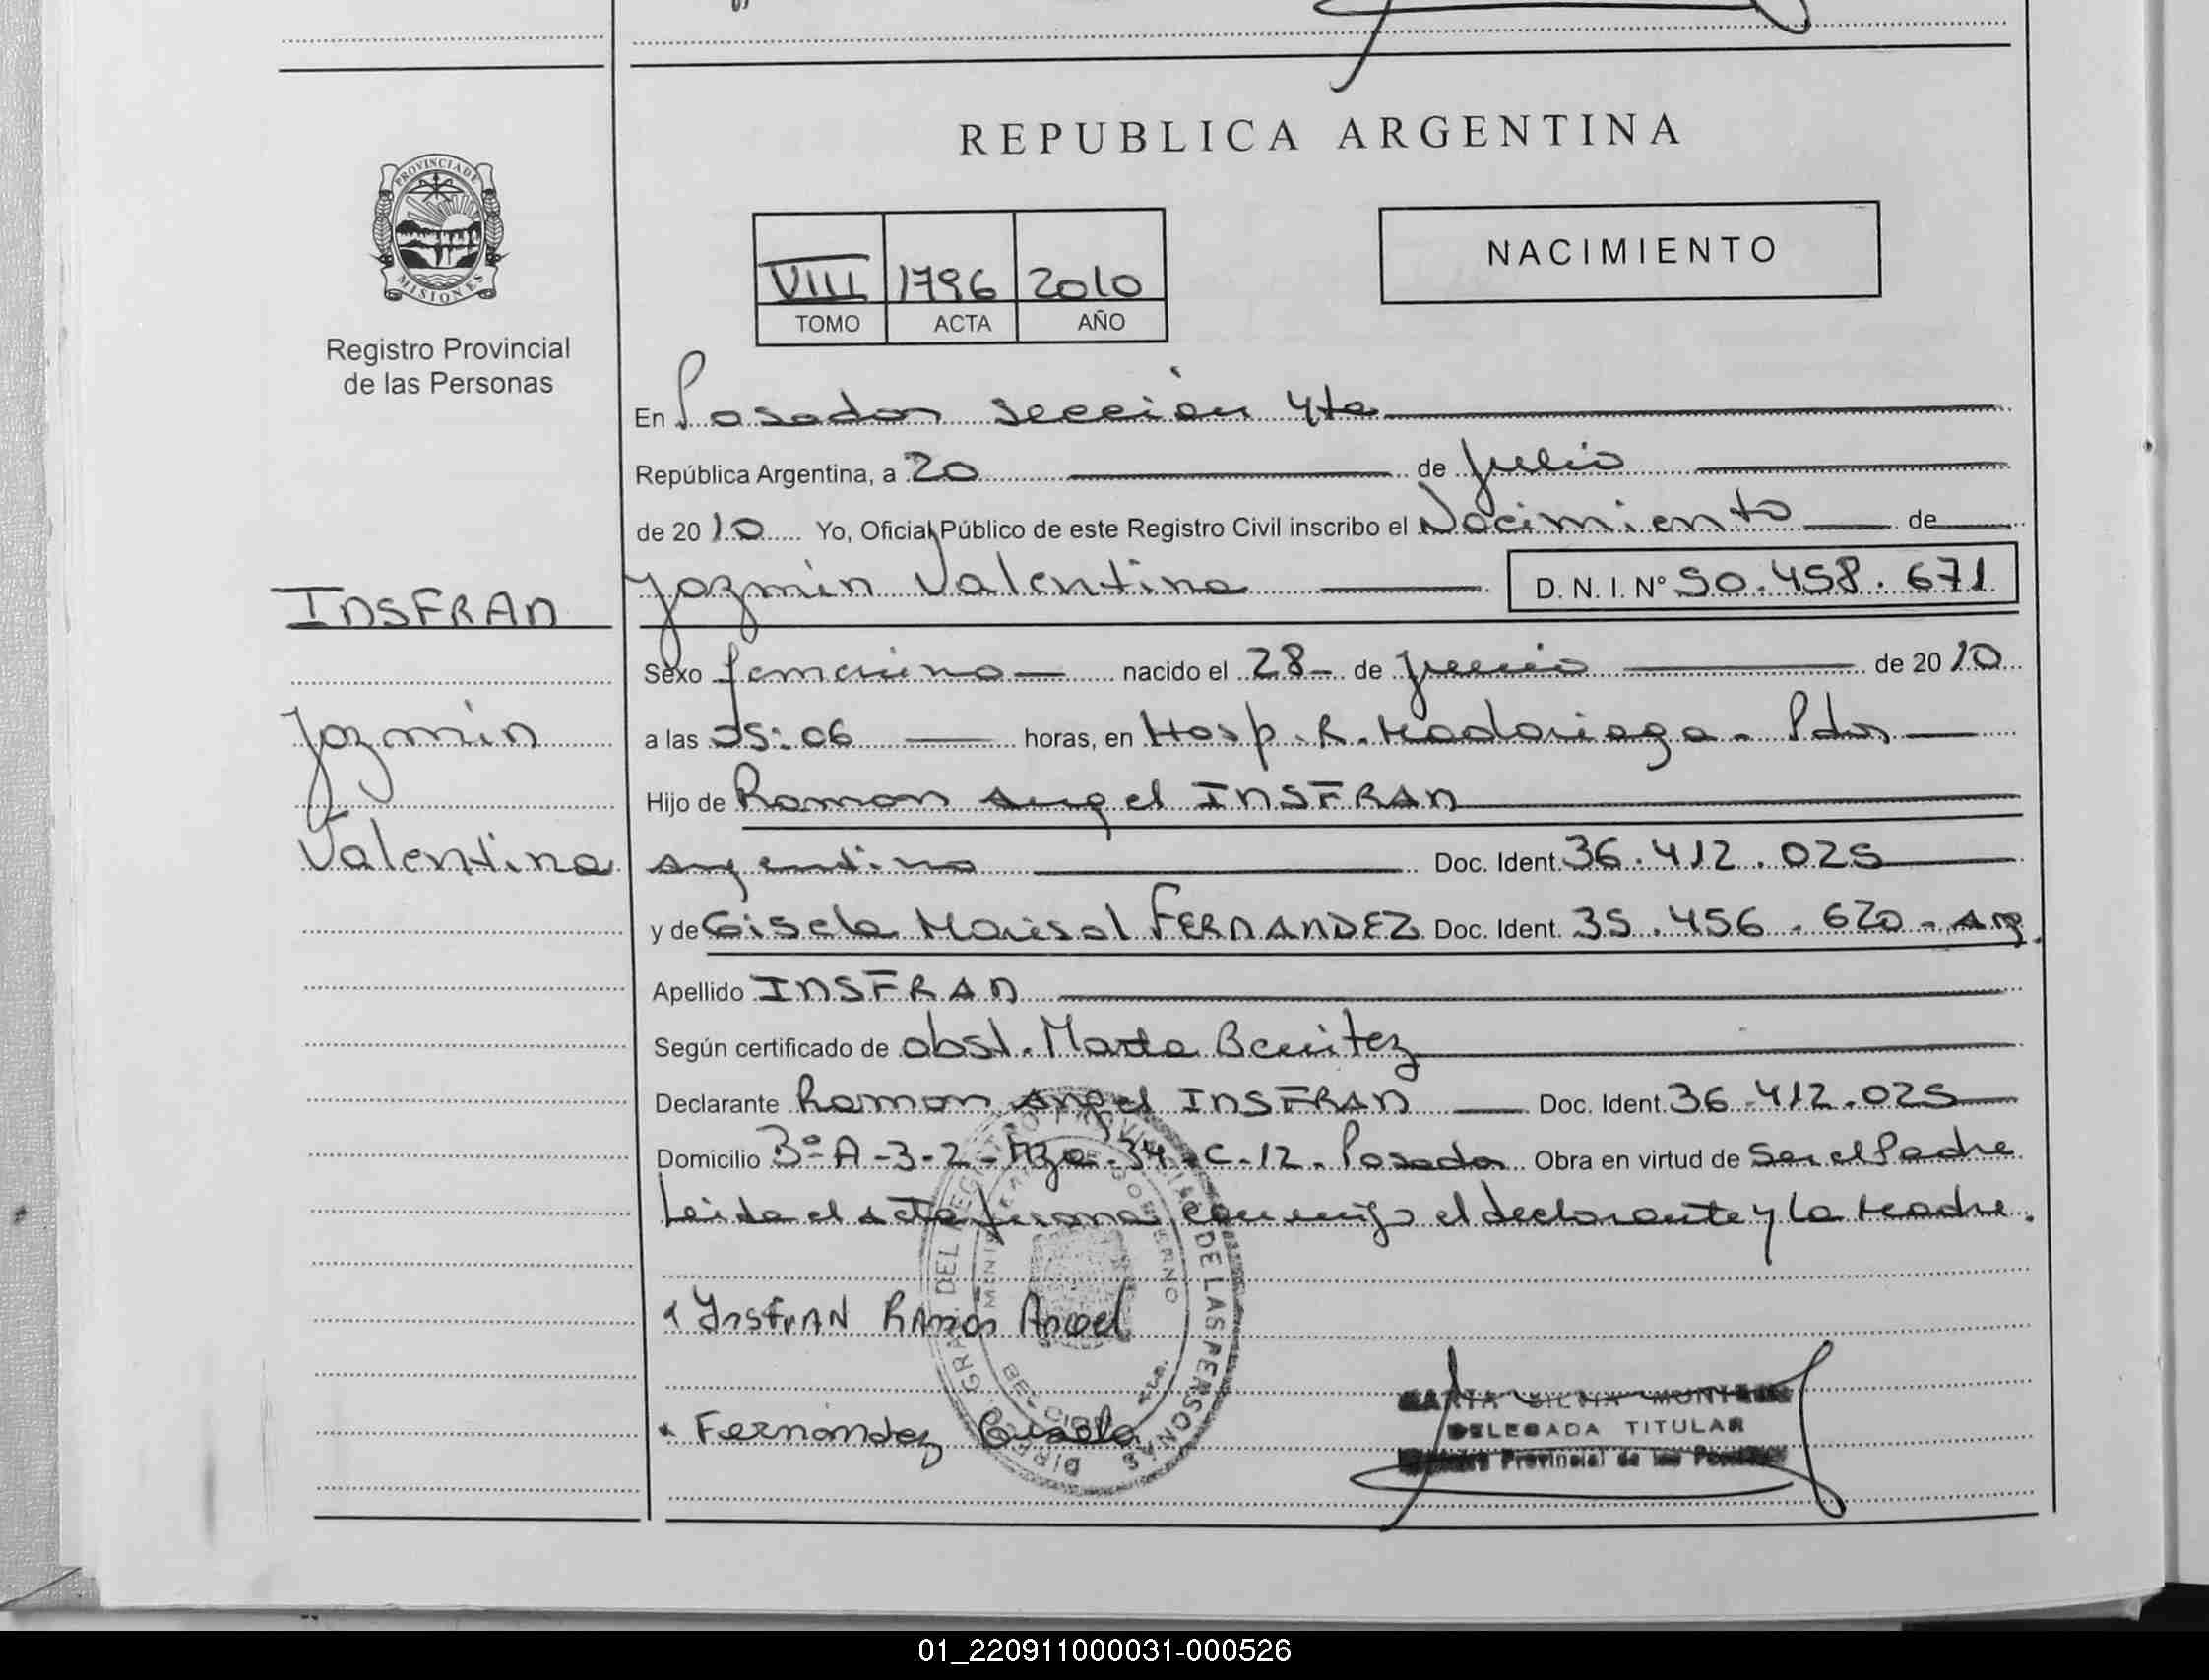 REPUBLICA ARGENTINA
PROVINCIA DE
MISIONES
Registro Provincial
de las Personas
NACIMIENTO
VIII 1796 2010
TOMO ACTA AÑO
En Posadas sección 4ta
República Argentina, a 20 de julio
de 2010 Yo, Oficial Público de este Registro Civil inscribo el Nacimiento de
Jazmin Valentina D. N. I. Nº 50.458.671
INSFRAN
Jazmin
Valentina
Sexo femenino nacido el 28 de junio de 2010
a las 05:06 horas, en Hosp. R. Madariaga - Pdas
Hijo de Ramon Angel INSFRAN
argentino Doc. Ident. 36.412.025
y de Gisela Marisol FERNANDEZ Doc. Ident. 35.456.620 - Arg.
Apellido INSFRAN
Según certificado de obst. Marta Benitez
Declarante Ramon Angel INSFRAN Doc. Ident. 36.412.025
Domicilio Bº A-3-2-Mza.34.C-12. Posadas Obra en virtud de Ser el Padre
Leida el acta firman conmigo el declarante y la Madre.
Insfran Ramon Angel
Fernández Gisela
DELEGADA TITULAR
Provincial de las
DEL REGISTRO PROVINCIAL DE LAS PERSONAS
GOBIERNO
01_220911000031-000526